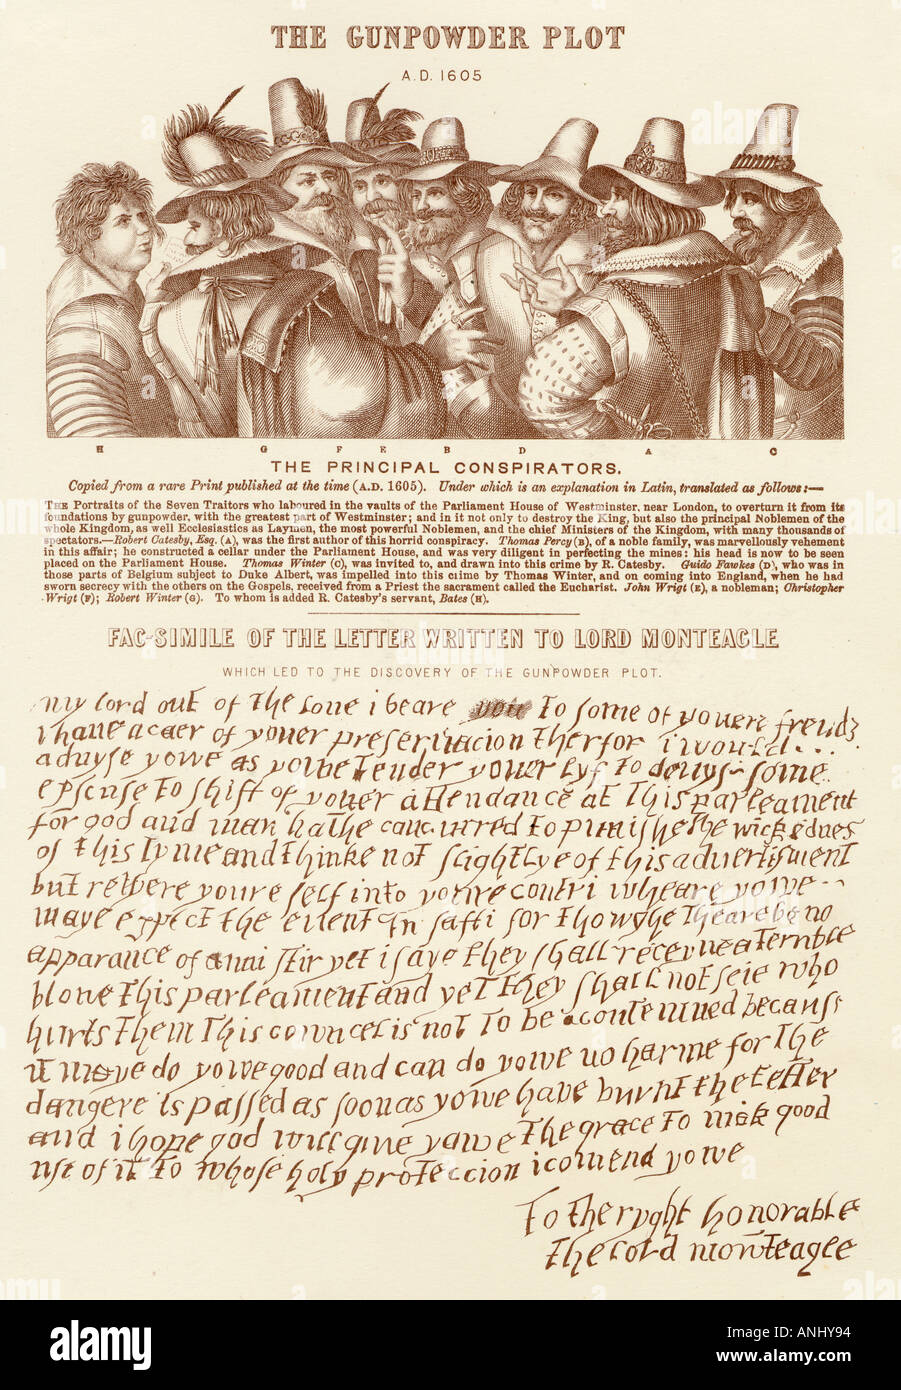 THE GUNPOWDER PLOT
A.D. 1605
H G F E B D A C
THE PRINCIPAL CONSPIRATORS.
Copied from a rare Print published at the time (A.D. 1605). Under which is an explanation in Latin, translated as follows:—
THE Portraits of the Seven Traitors who laboured in the vaults of the Parliament House of Westminster, near London, to overturn it from its
foundations by gunpowder, with the greatest part of Westminster; and in it not only to destroy the King, but also the principal Noblemen of the
whole Kingdom, as well Ecclesiastics as Laymen, the most powerful Noblemen, and the chief Ministers of the Kingdom, with many thousands of
spectators.—Robert Catesby, Esq. (A), was the first author of this horrid conspiracy. Thomas Percy (B), of a noble family, was marvellously vehement
in this affair; he constructed a cellar under the Parliament House, and was very diligent in perfecting the mines: his head is now to be seen
placed on the Parliament House. Thomas Winter (C), was invited to, and drawn into this crime by R. Catesby. Guido Fawkes (D), who was in
those parts of Belgium subject to Duke Albert, was impelled into this crime by Thomas Winter, and on coming into England, when he had
sworn secrecy with the others on the Gospels, received from a Priest the sacrament called the Eucharist. John Wrigt (E), a nobleman; Christopher
Wrigt (F); Robert Winter (G). To whom is added R. Catesby's servant, Bates (H).
FAC-SIMILE OF THE LETTER WRITTEN TO LORD MONTEAGLE
WHICH LED TO THE DISCOVERY OF THE GUNPOWDER PLOT.
my lord out of the love i beare you to some of youere frendz
i have a caer of youer preservacion therfor i would...
advyse yowe as yowe tender youer lyf to devys some
epscuse to shift of youer attendance at this parleament
for god and man hathe concurred to punishe the wickednes
of this tyme and thinke not slightlye of this advertisment
but retyere youre self into youre contri wheare yowe
maye expect the event in safti for thowghe theare be no
apparance of anni stir yet i saye they shall receyve a terrible
blowe this parleament and yet they shall not seie who
hurts them this cowncel is not to be contemned because
it maye do yowe good and can do yowe no harme for the
dangere is passed as soon as yowe have burnt the letter
and i hope god will give yowe the grace to mak good
use of it to whose holy proteccion i comend yowe
To the ryght honorable
the lord monteagle
alamy
Image ID: ANHY94
www.alamy.com